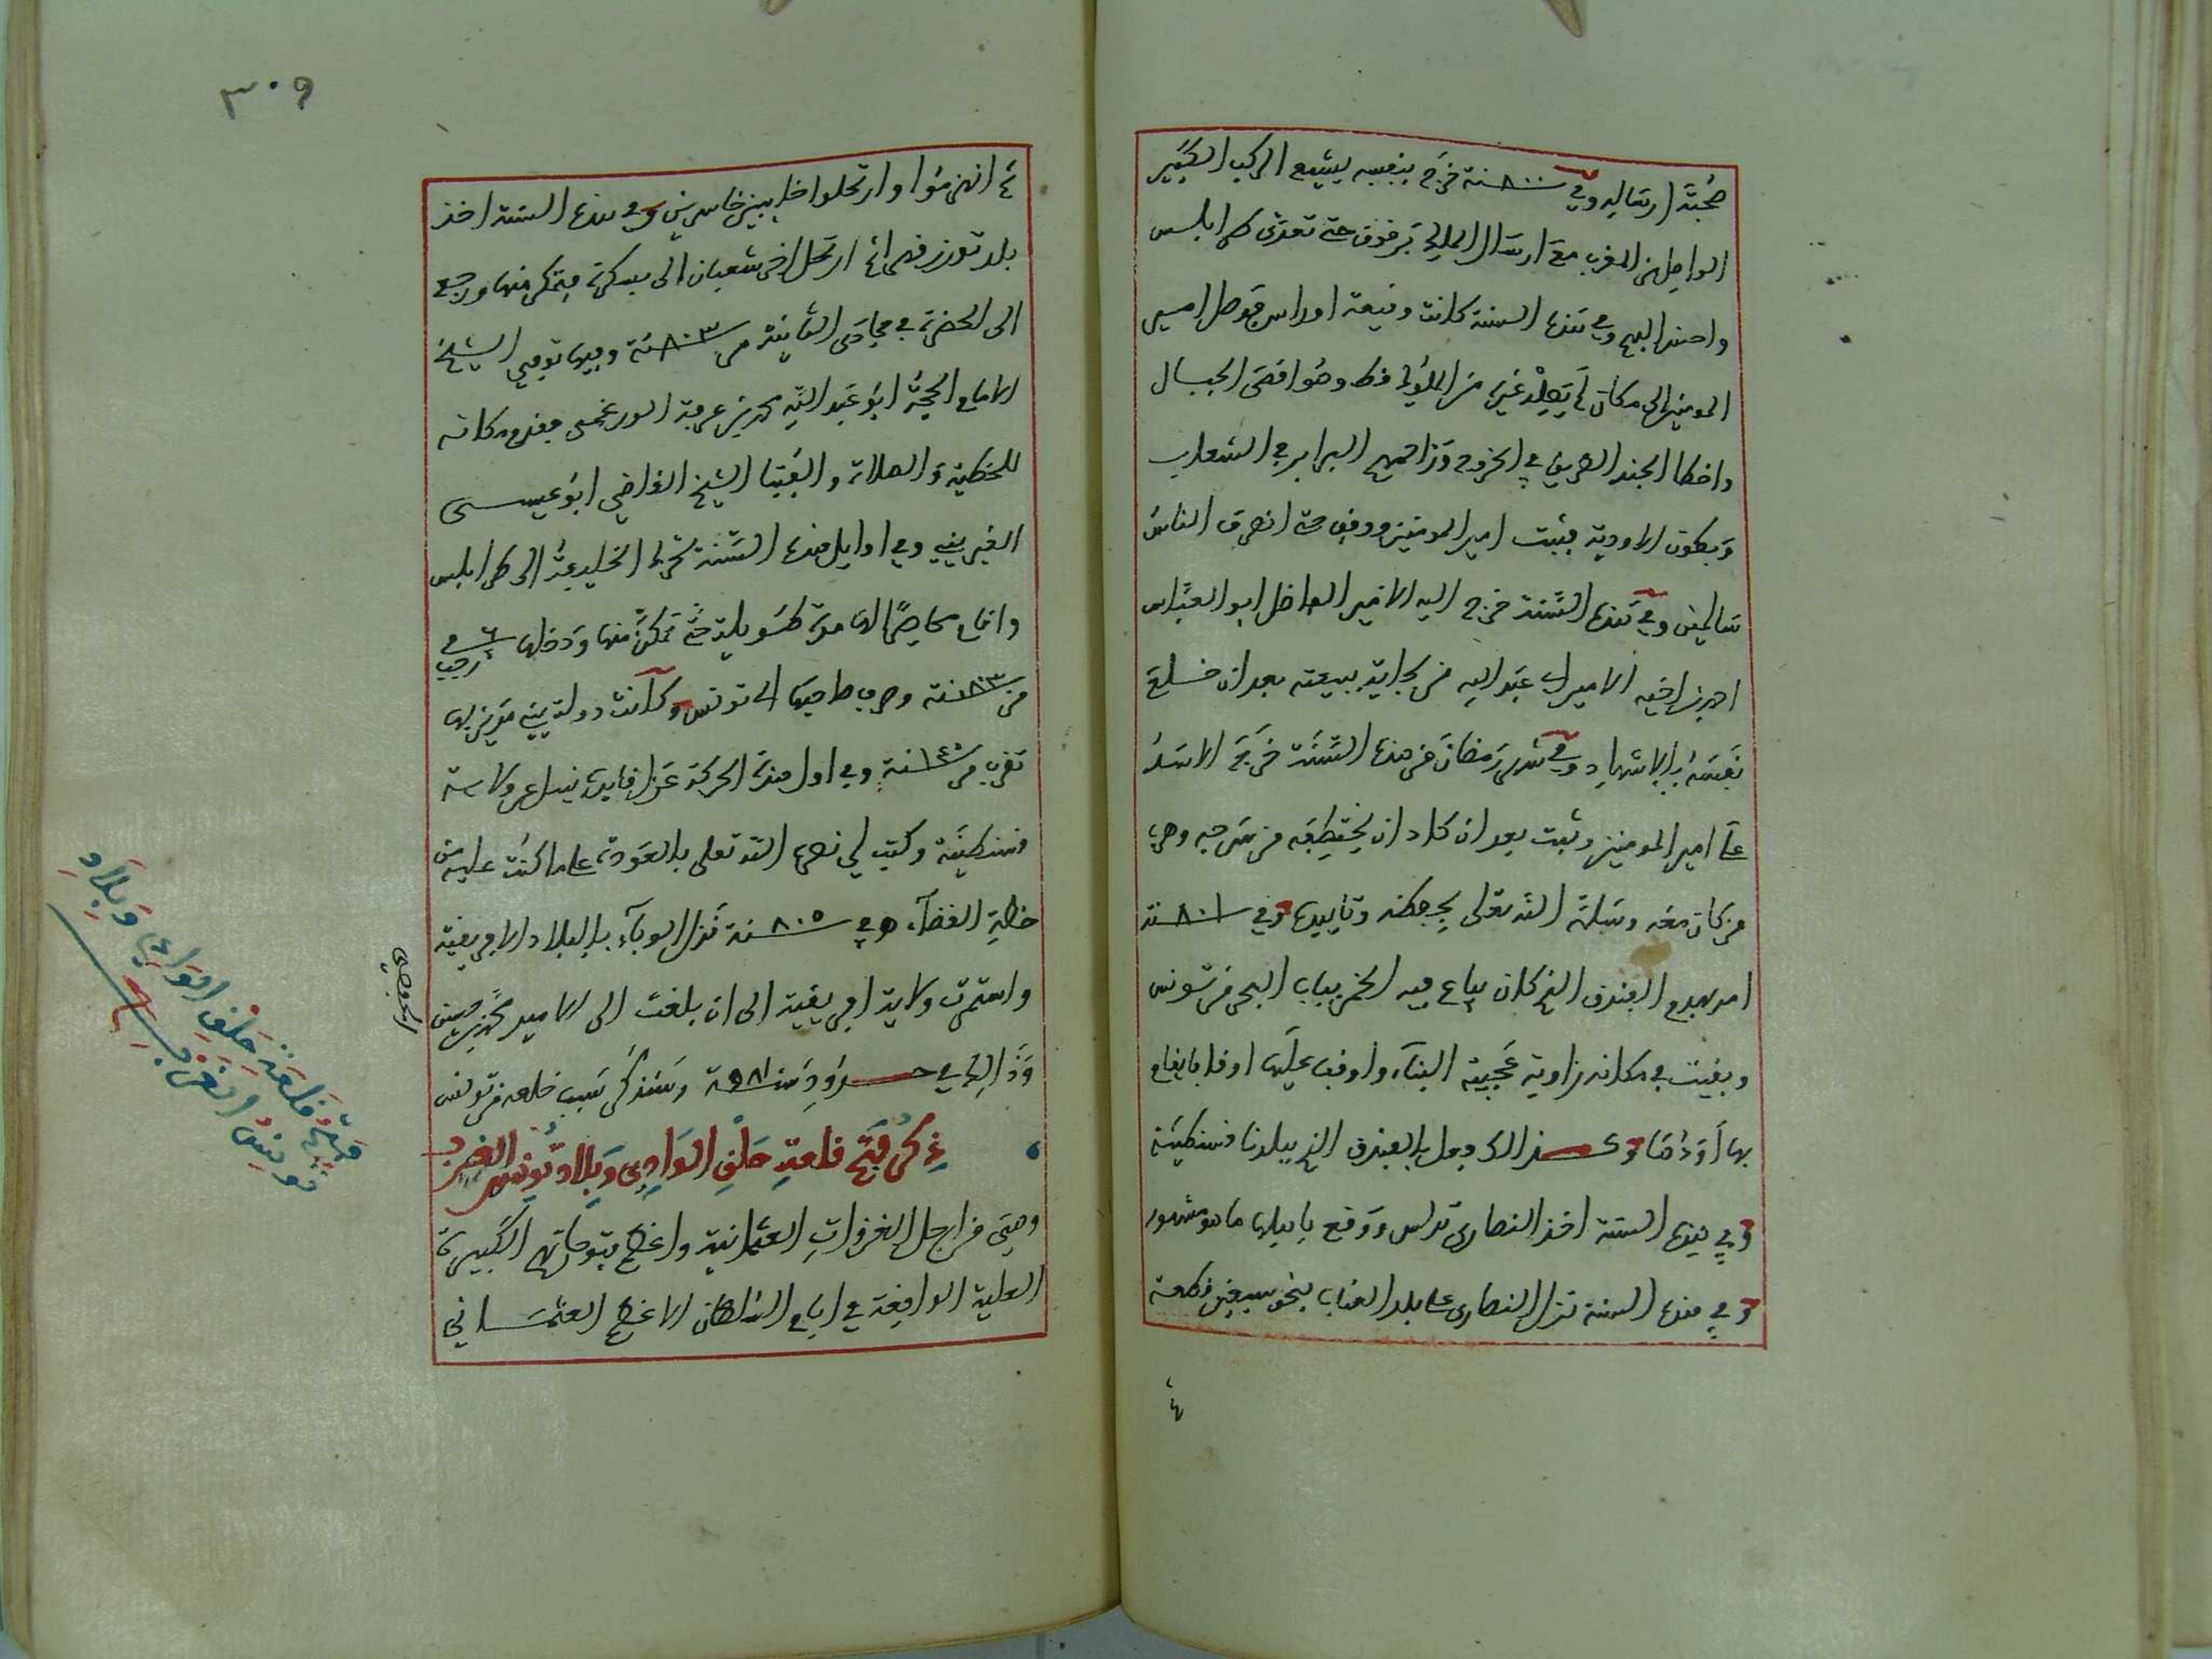 صُحبَة ارساله وفي ٨٠٠ سنة خرج بنفسه ليشيع الركب الكبير
الواصل من المغرب مع ارسال الملك برقوق حتى تعدى طرابلس
واحسن اليهم وفي هذه السنة كانت وقيعة اوراس فوصل امير
المومنين الى مكان لم يصله غيره من الملوك قط وهو اقصى الجبال
واخطا الجند الطريق في الخروج وزاحمهم البرابر في الشعاب
وبطون الاودية فثبت امير المومنين ووقف حتى انصرف الناس
سالمين وفي هذه السنة خرج اليه الامير الفاضل ابو العباس
احمد بن اخيه الامير ابي عبد الله من بجاية ببيعته بعد ان خلع
نفسه بالاشهاد وفي شهر رمضان من هذه السنة خرج الاسد
على امير المومنين وثبت بعد ان كاد ان يختطفه من سرجه وهرب
من كان معه وسلمه الله تعلى بحفظه وتاييده وفي ٨٠١ سنة
امر بهدم الفندق الذي كان يباع فيه الخمر بباب البحر من تونس
وبنيت في مكانه زاوية عجيبة البناء واوقف عليها اوقافا يقام
بها اودها وكذلك فعل بالفندق الذي ببلدنا قسنطينة
وفي هذه السنة اخذ النصارى تدلس ووقع باهلها ما هو مشهور
وفي هذه السنة نزل النصارى على بلد العناب بنحو سبعين قطعة
ثم
٣٠٩
ثم انهزموا وارتحلوا خايبين خاسرين وفي هذه السنة اخذ
بلد توزر قهرا ثم ارتحل اخر شعبان الى بسكرة فتمكن منها ورجع
الى الحضرة في جمادى الثانية من ٨٠٣ سنة وفيها توفي الشيخ
الامام الحجة ابو عبد الله محمد بن عرفة الورغمي فقدم مكانه
للخطبة والصلاة والفتيا الشيخ القاضي ابو عيسى
الغبريني وفي اوايل هذه السنة تحرك الخليفة الى طرابلس
واقام محاصرا لها مدة طويلة حتى تمكن منها ودخلها في ٦ رجب
من ٨٠٣ سنة وصرف صاحبها الى تونس وكانت دولة بني بها
تقرب من سنة وفي اول هذه الحركة عزل قايده نبيل عن ولاية
قسنطينة وكتب لي نصره الله تعلى بالعودة على ما كنت عليه من
خطة القضاء وفي ٨٠٥ سنة نزل الوباء بالبلاد الافريقية
واستمرت ولاية افريقية الى ان بلغت الى الامير محمد بن حسن
الحفصي
وذالك في حدود سنة ٩٨١ وسنذكر سبب خلعه من تونس
ذكر فتح قلعة حلق الوادي وبلاد تونس الغرب
وهي من اجل الغزوات العثمانية واعظم فتوحاتهم الكبيرة
العلية الواقعة في ايام السلطان الاعظم العثماني
فتح قلعة حلق الوادي وبلاد
تونس الغرب